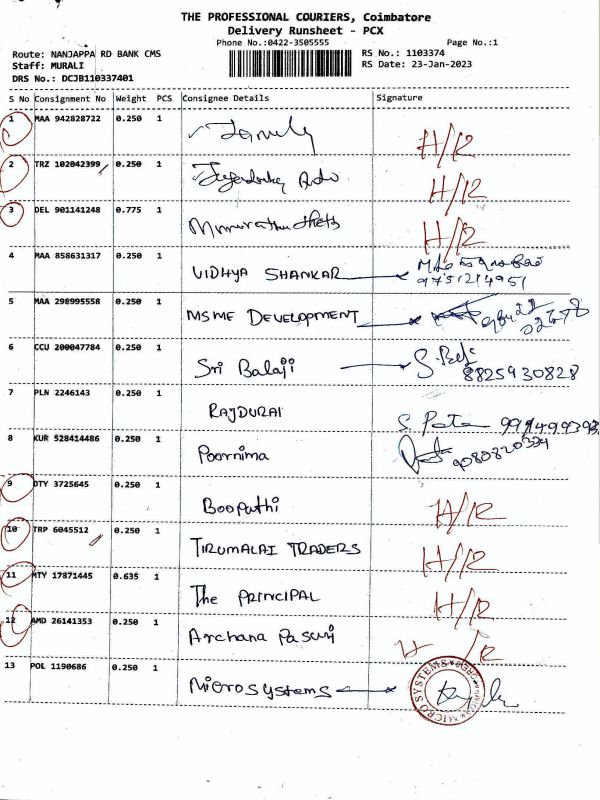 THE PROFESSIONAL COURIERS, Coimbatore
Delivery Runsheet - PCX
Phone No.:0422-3505555 Page No.:1
Route: NANJAPPA RD BANK CMS RS No.: 1103374
Staff: MURALI RS Date: 23-Jan-2023
DRS No.: DCJB110337401
S No Consignment No Weight PCS Consignee Details Signature
1 MAA 942828722 0.250 1 H/R
2 TRZ 102042399 0.250 1 H/R
3 DEL 901141248 0.775 1 H/R
4 MAA 858631317 0.250 1 VIDHYA SHANKAR
9751214951
5 MAA 298995558 0.250 1 MSME DEVELOPMENT
6 CCU 200047784 0.250 1 Sri Balaji
8825930828
7 PLN 2246143 0.250 1 RAJDURAI
8 KUR 528414486 0.250 1 Poornima
9 DTY 3725645 0.250 1 Boopathi H/R
10 TRP 6045512 0.250 1 TIRUMALAI TRADERS H/R
11 MTY 17871445 0.635 1 The PRINCIPAL H/R
12 AMD 26141353 0.250 1 Archana H/R
13 POL 1190686 0.250 1 Microsystems
MICRO SYSTEMS